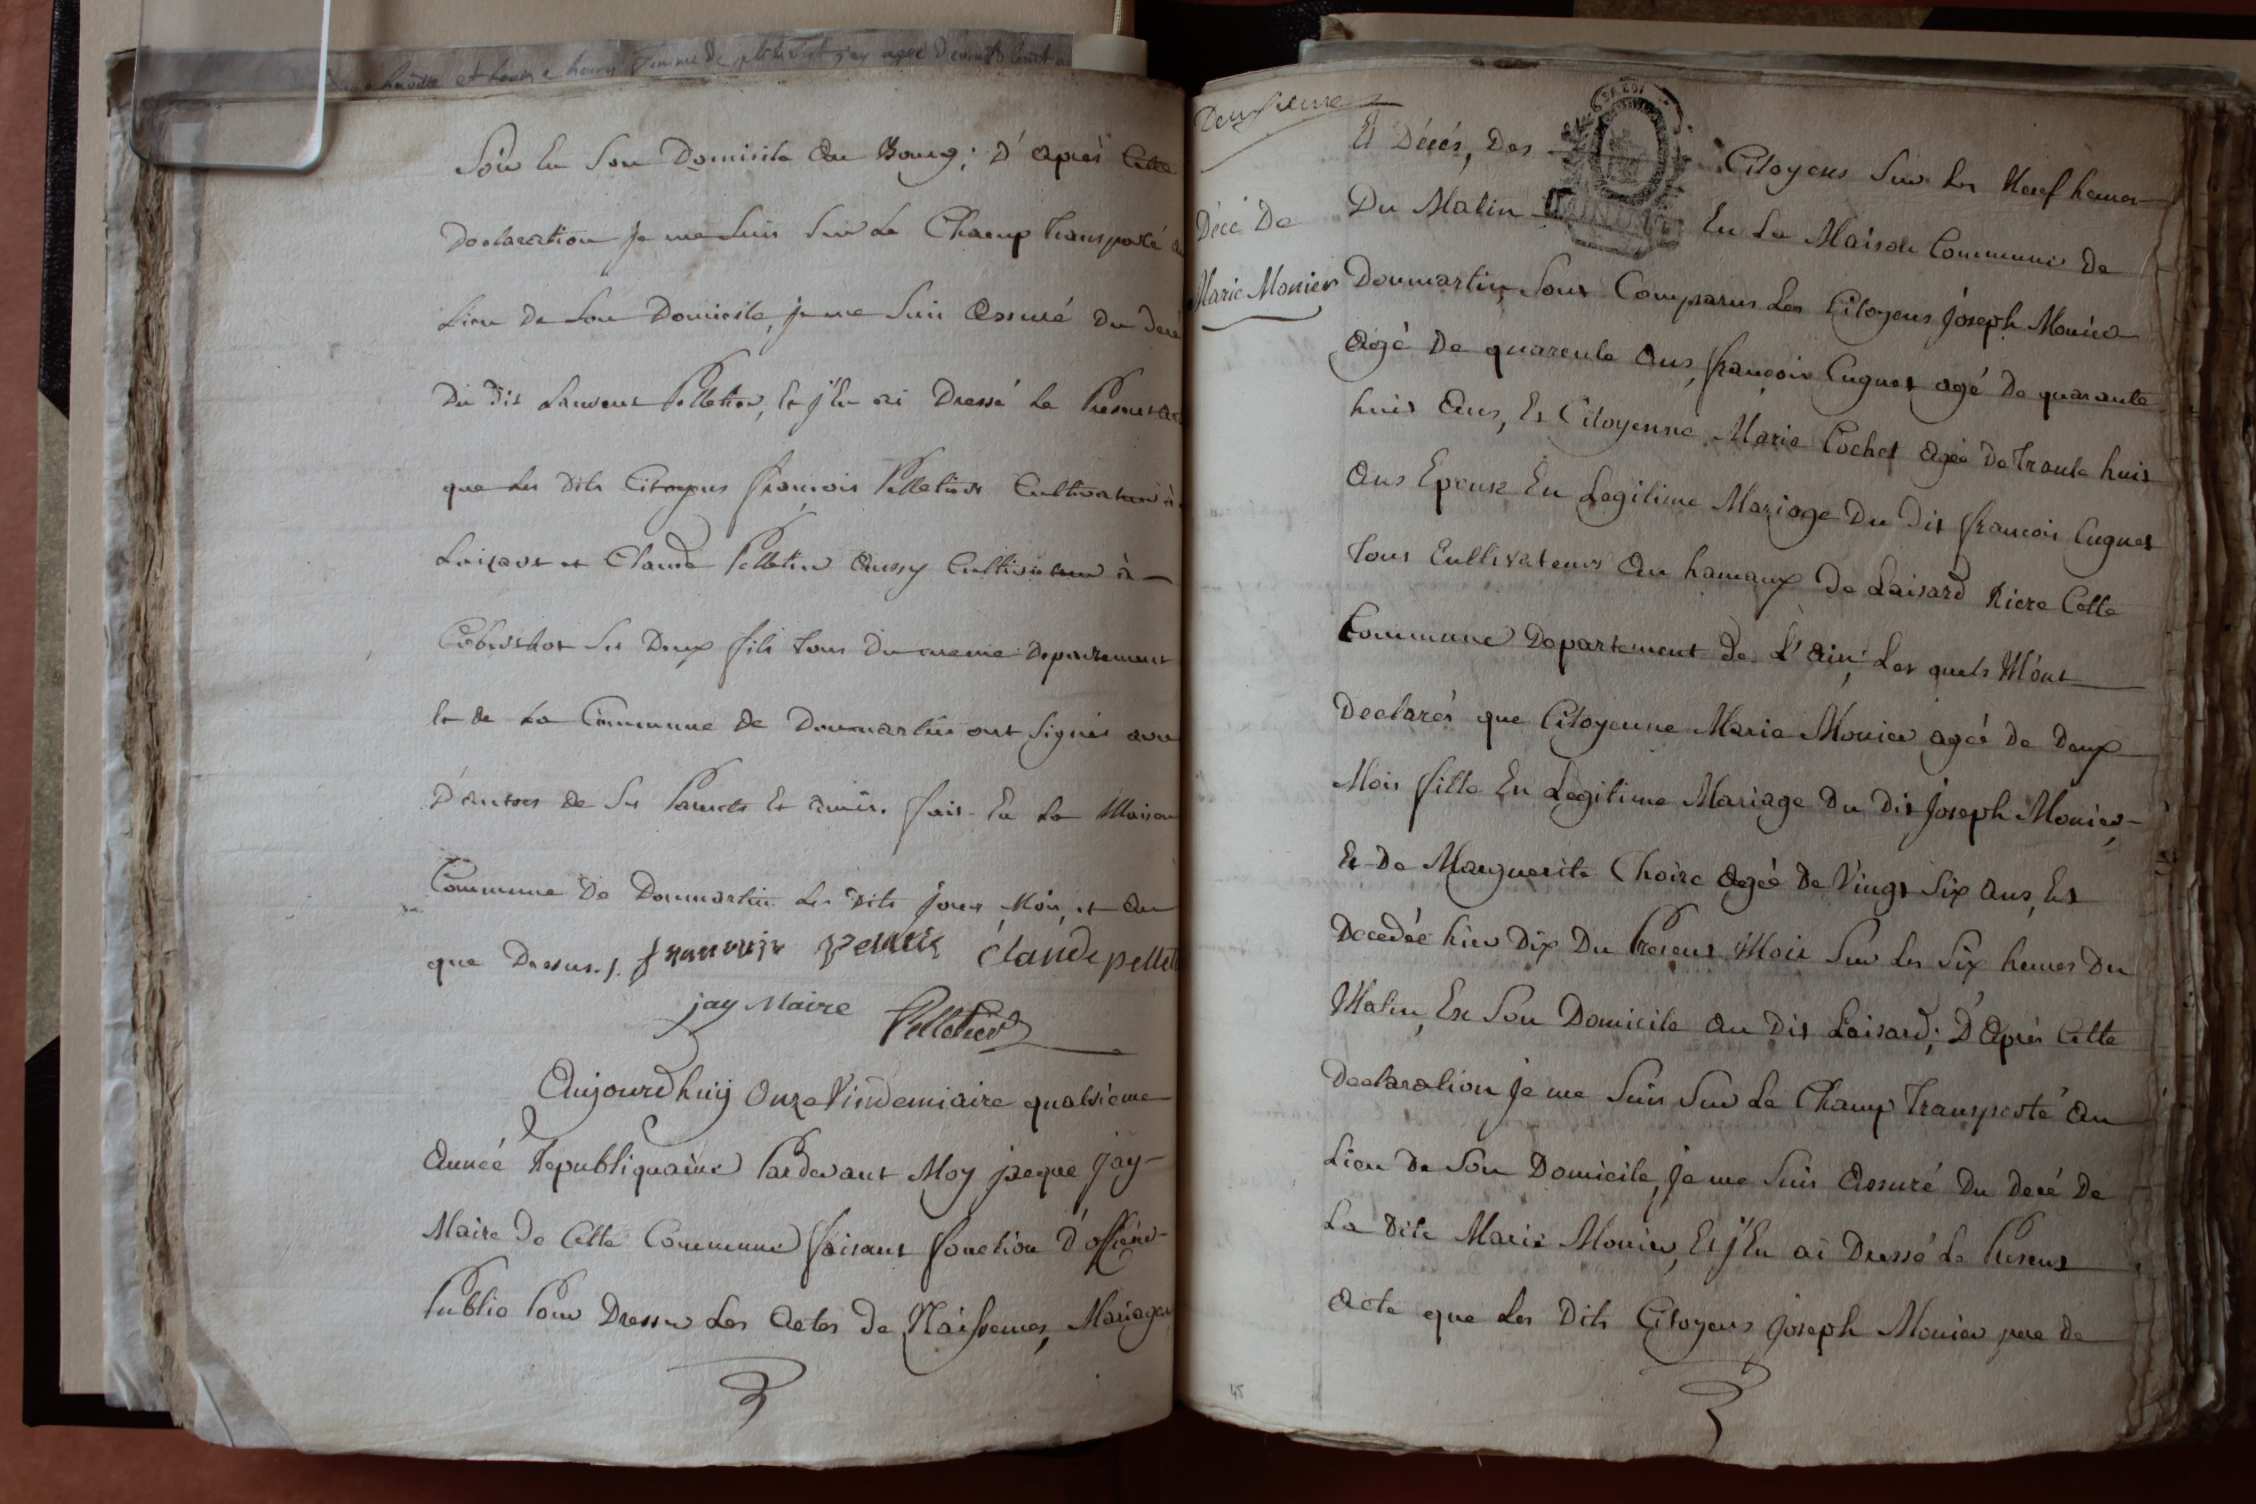 Soir En Son Domicile Au Bourg; D'Après Cette
Declaration Je me Suis Sur Le Champ Transporté au
Lieu De Son Domicile, je me Suis Assuré Du decé
Du dit Laurent Pelletier, Et j'En ai Dressé Le Present acte
que Les dits Citoyens françois Pelletier Cultivateur à
Laisart et Claude Pelletier Aussy Cultivateur à
Ses Deux fils tous Du meme Departement
Et de La Commune de Donmartin ont Signés avec
D'autres de Ses Parents Et amis. fait En La Maison
Commune De Donmartin Les dits Jour, Mois, et An
que Dessus./. francois pelletie claude pelleti
jay Maire Pelletier
Aujourdhuij Onze Vindemiaire quatrieme
Année Republiquaine Pardevant Moy jacque jay
Maire De Cette Commune faisant fonction D'officier
Public Pour Dresser Les Actes de Naissences, Mariages
Deuxieme
Et Décés, Des Citoyens Sur Les Neuf heures
Du Matin En La Maison Commune De
Décé De
Marie Monier
Donmartin, Sont Comparus Les Citoyens Joseph Monier
Agé De quarente Ans, francois Cugnet agé De quarante
huit Ans, Et Citoyenne Marie Cochet Agée De Trante huit
Ans Epouse En Legitime Mariage Du Dit francois Cugnet
Tous Cultivateurs Au hamaux De Laisard Riere Cette
Commune Departement De L'Ain, Les quels M'ont
Declarés que Citoyenne Marie Monier agée De Deux
Mois fille En Legitime Mariage Du Dit Joseph Monier,
Et De Marguerite Choire Agée De Vingt Six Ans, Est
Decedée hier Dix Du Present Mois Sur Les Six heures Du
Matin, En Son Domicile Au Dit Laisard; D'Après Cette
Declaration Je me Suis Sur Le Champ Transporté Au
Lieu De Son Domicile, Je me Suis Assuré Du decé De
La dite Marie Monier, Et j'En ai Dressé Le Present
Acte que Les Dits Citoyens Joseph Monier pere De
45